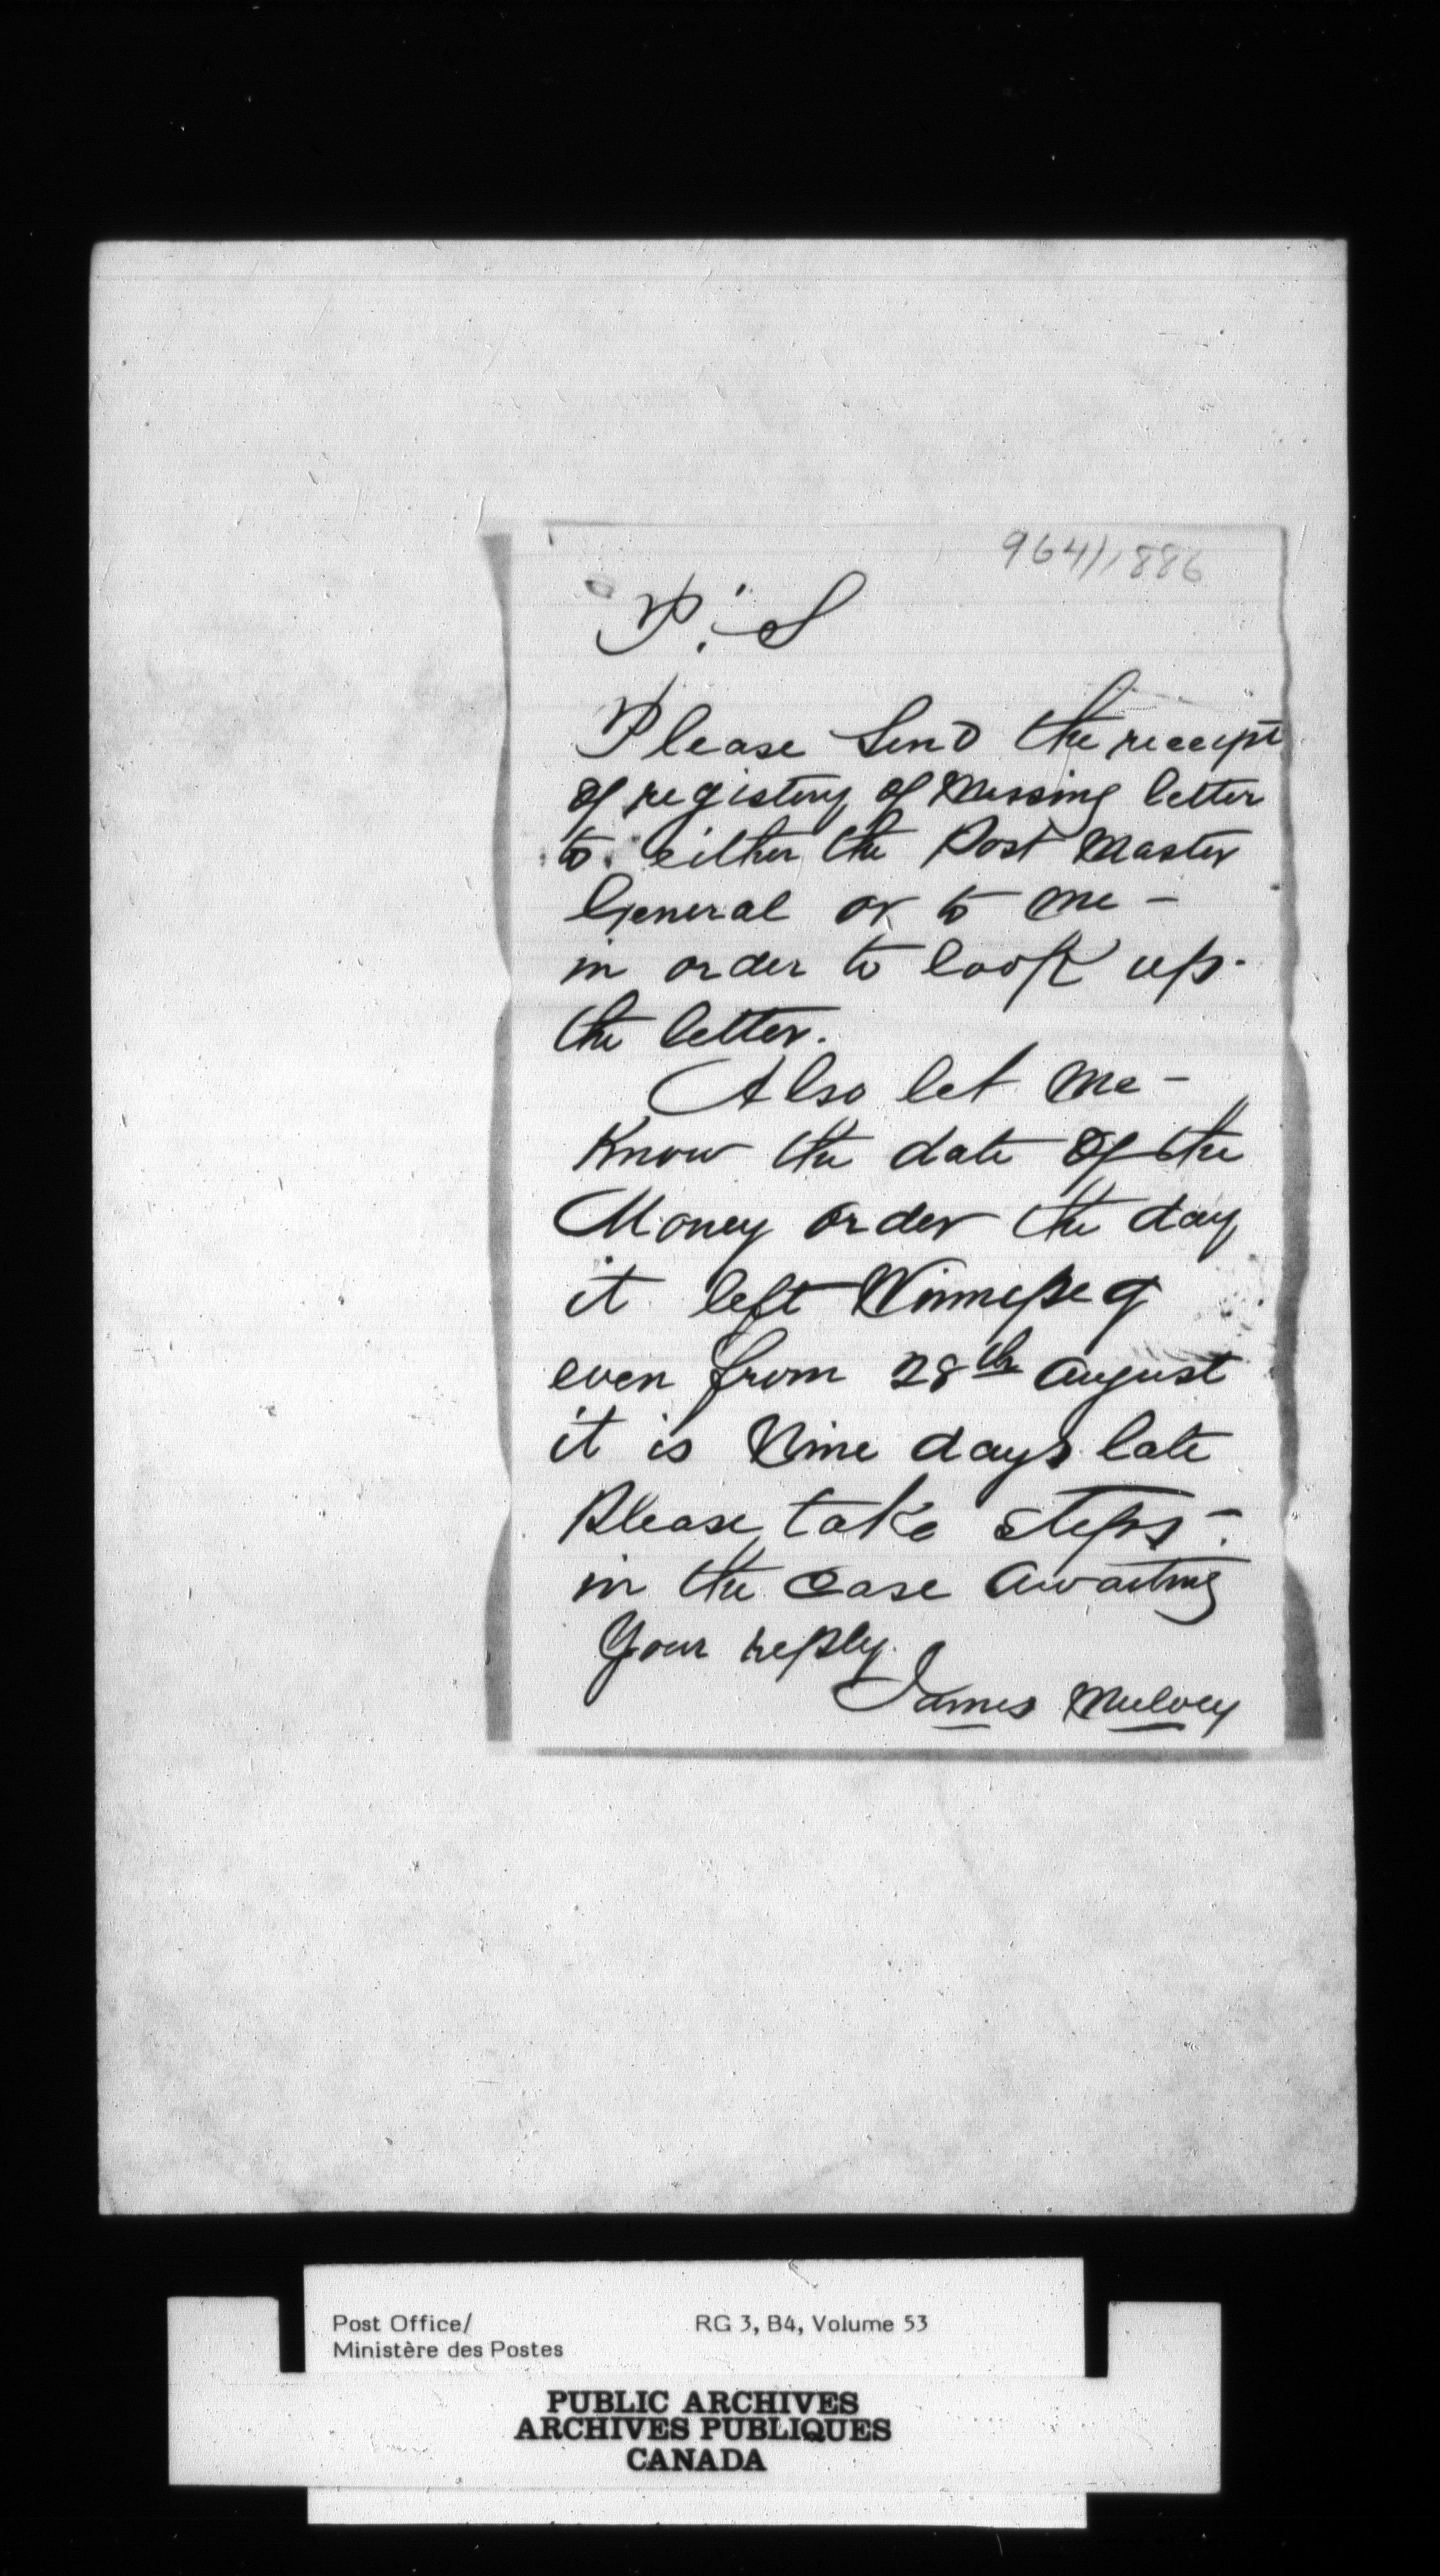 964/1886
P.S
Please Send the receipt
of registery of Missing letter
to either the Post Master
General or to me -
in order to look up.
the letter.
Also let Me -
Know the date Of the
Money order the day
it left Winnepeg
even from 28th August
it is Nine days late
Please take steps -.
in the Case Awaiting
Your reply.
James Mulvey
Post Office/ RG 3, B4, Volume 53
Ministère des Postes
PUBLIC ARCHIVES
ARCHIVES PUBLIQUES
CANADA